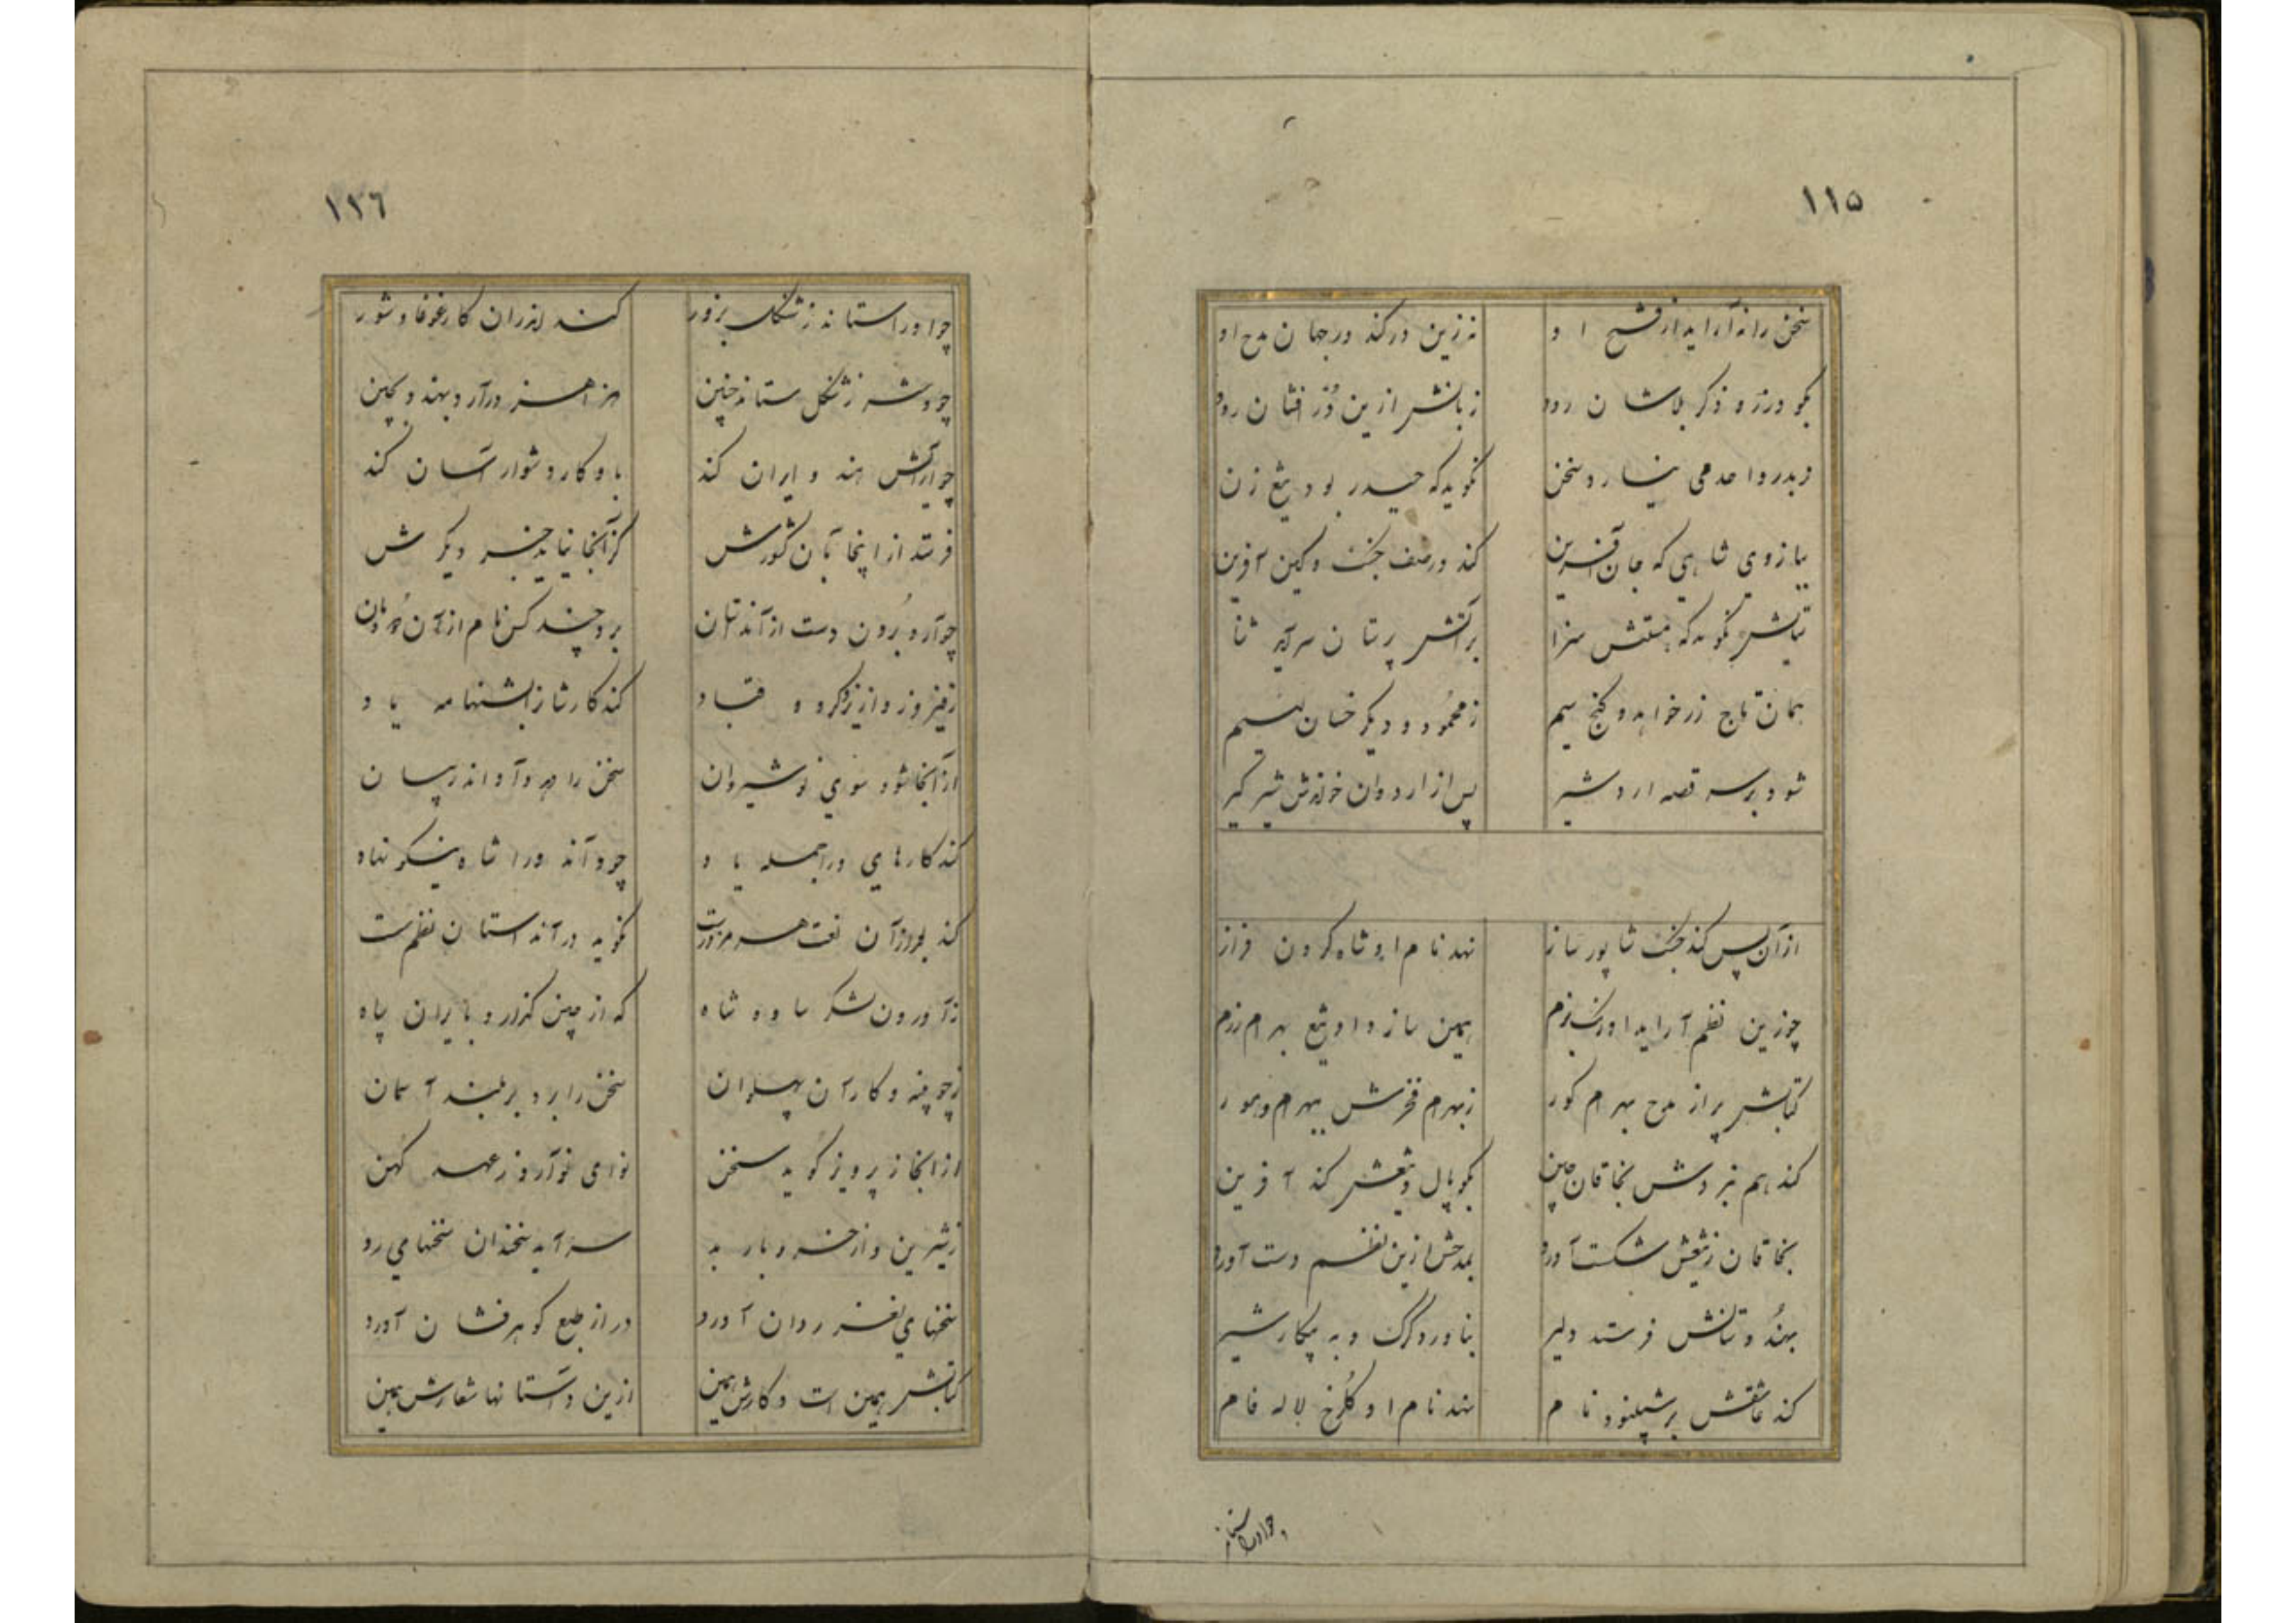 ۱۱۵
سخن را نه آراید از فتح او نه زین در کند در جهان مدح او
بکو درز و ذکر بلاشان رود زبانش ازین دُر فشان رود
سخن نکوید که حیدر بود تیغ زن
ببازوی شاهی که جان آفرین کند در صف جنک و کین آفرین
نکوید که سزا بر آتش پرستان سرآید ثنا
همان تاج زر خواهد و کنج سیم ز محمُود و دیکر خسان لئیم
شود بر سر قصه اردشیر پس از اردوان خواندش شیر کیر
از آن پس کند جنک شاپور ساز نهد نام او شاه کردن فراز
چو زین نظم آراید اورنک بزم همین سازد او تیغ بهرام رزم
کتابش پر از مدح بهرام کور ز بهرام فخرش ببهرام و هور
کند هم نبردش بخاقان چین بکوپال و تیغش کند آفرین
بخاقان ز تیغش شکست آورد بمدحش ازین نظم دست آورد
بهندُوستانش فرستد دلیر بناورد کرک و به پیکار شیر
کند عاشقش بر سپینود نام نهد نام او کلُرخ لاله فام
چو او را ستاند
۱۱٦
چو او را ستاند ز شنکل بزور کند اندران کار غوغا و شور
چو دختر ز شنکل ستاند چنین هزاهز در آرد بهند و بچین
چو آرایش هند و ایران کند باو کار دشوار آسان کند
فرستد از اینجا بآن کشورش کز آنجا نیاید خبر دیکرش
چو آرد برُون دست از آن داستان برد چند کس نام از آن دُودمان
ز فیروز و از یزدکرد و قباد کند کارشان را بشهنامه یاد
از آنجا شود سوی نوشیروان سخن را در آرد اندر میان
کند کارهای ورا جمله یاد چو داند ورا شاه نیکو نهاد
کند بعد از آن نعت هرمز درست نکوید در آن داستان نظم سست
ز آوردن لشکر ساوه شاه که از چین کذارد بایران سپاه
ز چوبینه و کار آن پهلوان سخن را برد بر بلند آسمان
از انجا ز پرویز کوید سخن نوای نو آرد ز عهد کهن
ز شیرین و از خسرو باربد سراید سخندان سخنهای رد
سخنهای نغز روان آورد در از طبع کوهر فشان آورد
کتابش همین است و کارش همین ازین داستانها شعارش همین